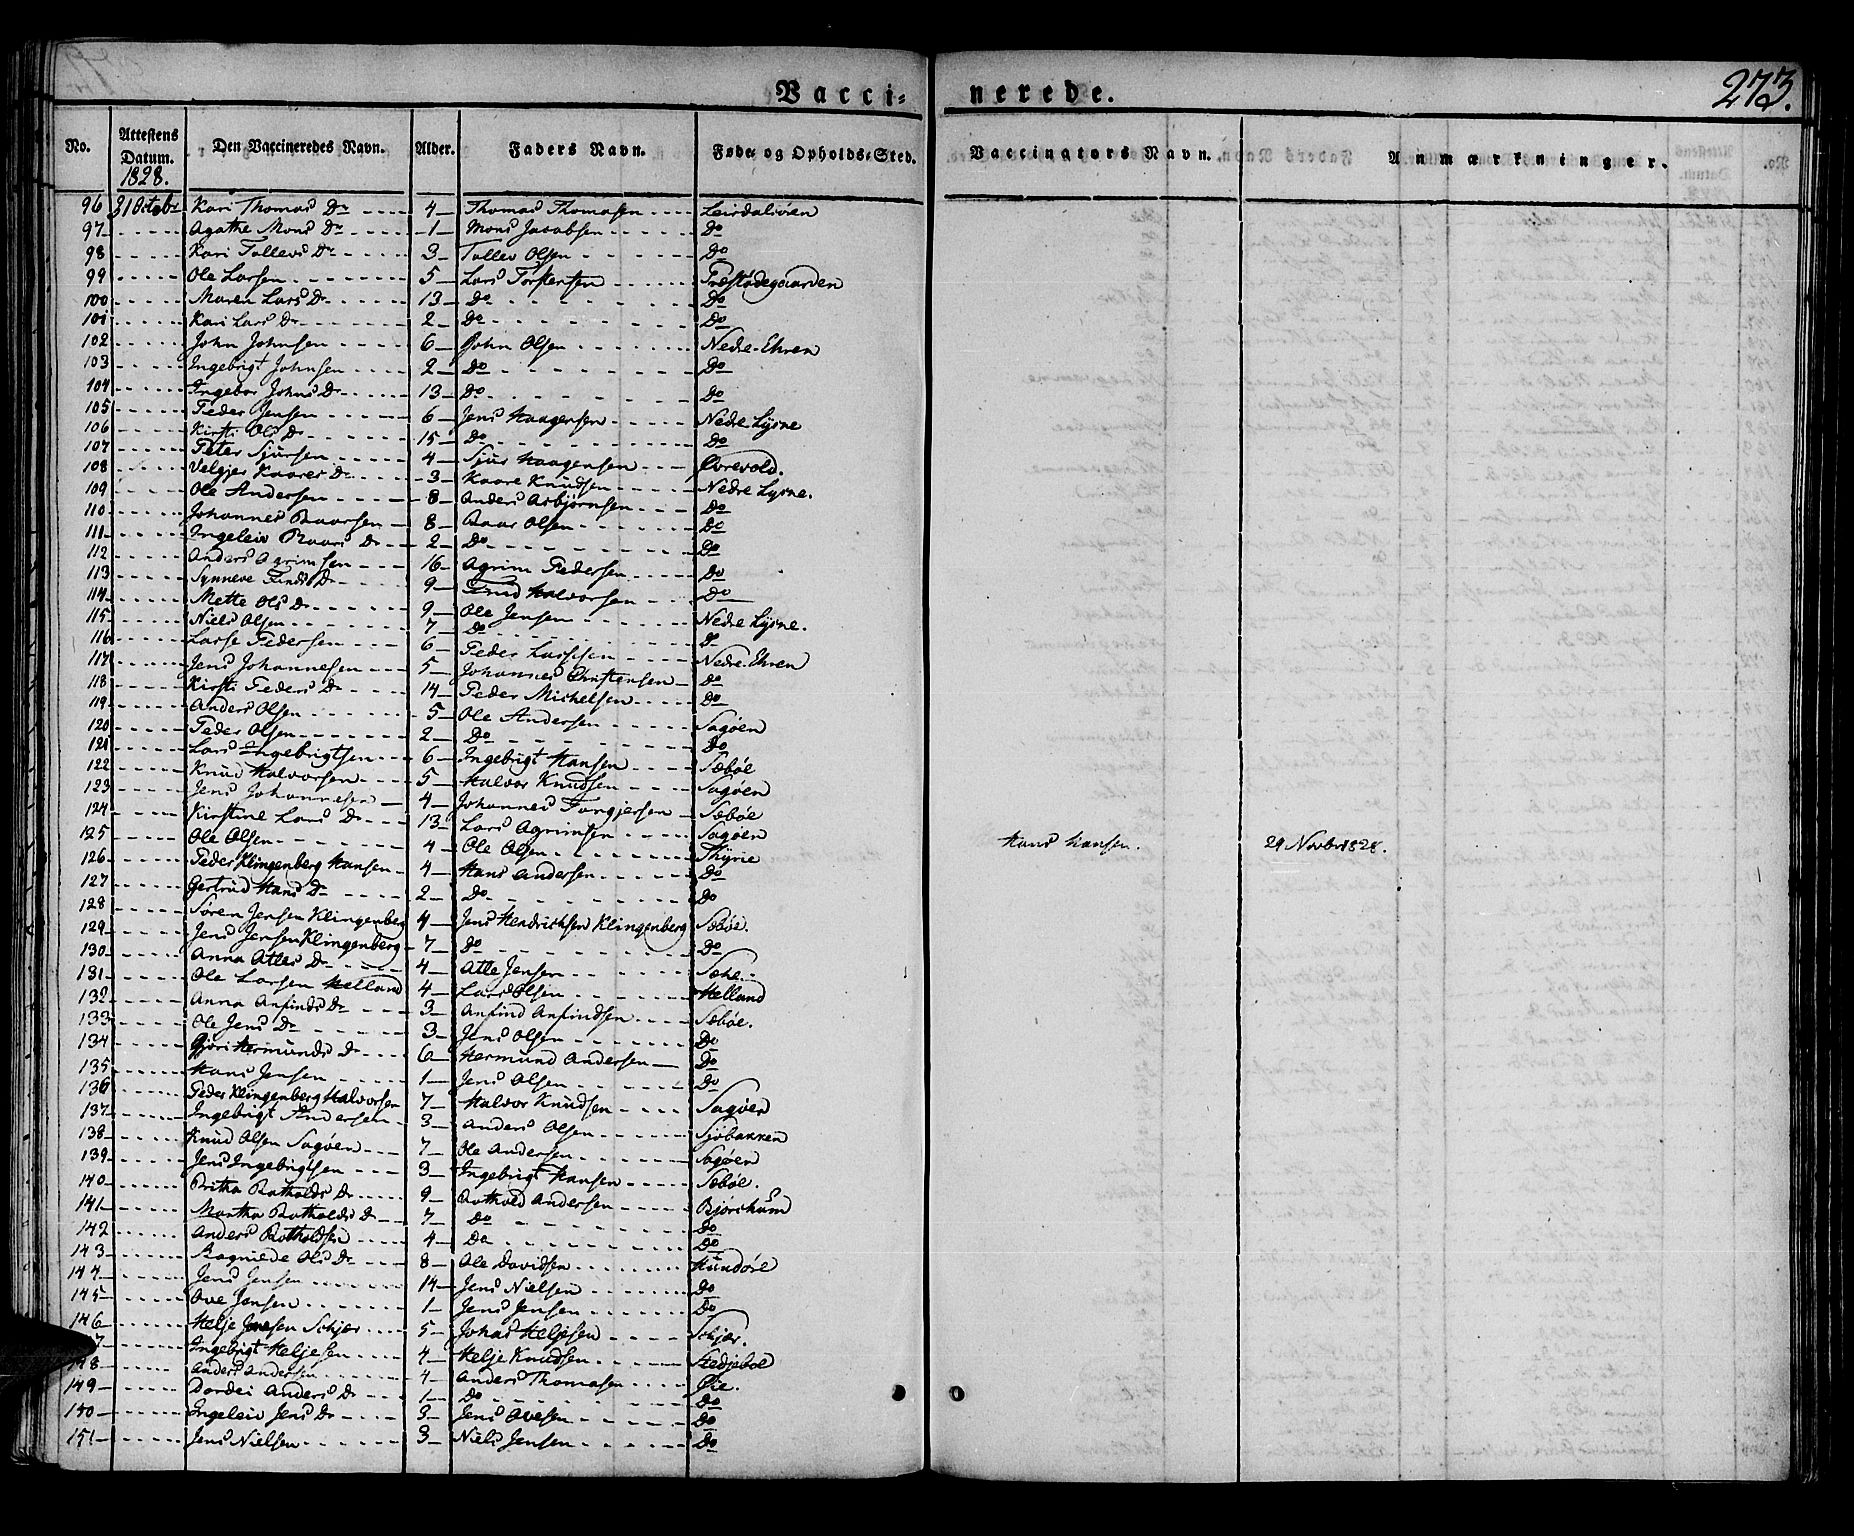 Vacci= nerede. 273.
No. Attestens Datum. 1828. Den Vaccineredes Navn. Alder. Faders Navn. Føde og Opholds-Sted. Vaccinators Navn. Anmærkninger.
96 31 Octobr Kari Thomas Dr 4 Thomas Thomasen Leirdalsøen
97 Agathe Mons Dr 1 Mons Jacobsen Do
98 Kari Tollevs Dr 3 Tollev Olsen Do
99 Ole Larsen 5 Lars Torstensen Præstødegaarden
100 Maren Lars Dr 13 Do Do
101 Kari Lars Dr 2 Do Do
102 John Johnsen 6 John Olsen Nedre-Ehren
103 Ingebrigt Johnsen 2 Do Do
104 Ingebor Johns Dr 13 Do Do
105 Peder Jensen 6 Jens Haagensen Nedre Lysne
106 Kirsti Ols Dr 15 Do Do
107 Peter Sjursen 4 Sjur Haagensen Øvrevold.
108 Velgjer Kaares Dr 3 Kaare Knudsen Nedre Lysne.
109 Ole Andersen 8 Anders Asbjørnsen Do
110 Johannes Baarsen 8 Baar Olsen Do
111 Ingeleiv Baars Dr 2 Do Do
112 Anders Agrimsen 16 Agrim Pedersen Do
113 Synneve Dr 9 Halvorsen Do
114 Mette Ols Dr 9 Ole Jensen Nedre Lysne.
115 Niels Olsen 7 Do Do
116 Lasse Pedersen 6 Peder Larssen Nedre-Ehren
117 Jens Johannesen 5 Johannes Christensen Do
118 Kirsti Peders Dr 14 Peder Michelsen Do
119 Anders Olsen 5 Ole Andersen Sagøen
120 Peder Olsen 2 Do Do
121 Lars Ingebrigtsen 6 Ingebrigt Hansen Sæbøe
122 Knud Halvorsen 5 Halvor Knudsen Sagøen
123 Jens Johannesen 4 Johannes Torgjersen Sæbøe
124 Kirstine Lars Dr 13 Lars Agrimsen Sagøen
125 Ole Olsen 4 Ole Olsen Thynie Hans Hansen. 29 Novbr 1828.
126 Peder Klingenberg Hansen 4 Hans Andersen Do
127 Gertrud Hans Dr 2 Do Do
128 Søren Jensen Klingenberg 4 Jens Hendrichsen Klingenberg Sæbøe.
129 Jens Jensen Klingenberg 7 Do Do
130 Anna Atles Dr 4 Atle Jensen
131 Ole Larsen Helland 4 Lars Olsen Helland
132 Anna Anfinds Dr 3 Anfind Anfindsen Sæbøe.
133 Ole Jens Dr 3 Jens Olsen Do
134 Gjøri Hermunds Dr 6 Hermund Andersen Do
135 Hans Jensen 1 Jens Olsen Do
136 Peder Klingenberg Halvorsen 7 Halvor Knudsen Sagøen
137 Ingebrigt Andersen 3 Anders Olsen Sjøbakken
138 Knud Olsen Sagøen 7 Ole Andersen Sagøen
139 Jens Ingebrigtsen 3 Ingebrigt Hansen Sæbøe.
140 Britha Botholds Dr 9 Bothold Andersen Bjørchum
141 Martha Botholds Dr 7 Do Do
142 Anders Botholdsen 4 Do Do
143 Ragniede Ols Dr 8 Ole Davidsen Hundøle
144 Jens Jensen 14 Jens Nielsen Do
145 Ove Jensen 1 Jens Jensen Do
146 Helje Schjær 5 Johas Heljesen Schjær.
7 Ingebrigt Heljesen 4 Helje Knudsen Stedjeboe
148 Anders Andersen 4 Anders Thomasen Øie.
149 Dordei Anders Dr 1 Do Do
150 Ingeleiv Jens Dr 3 Jens Ovesen Do
151 Jens Nielsen 3 Niels Jensen Do